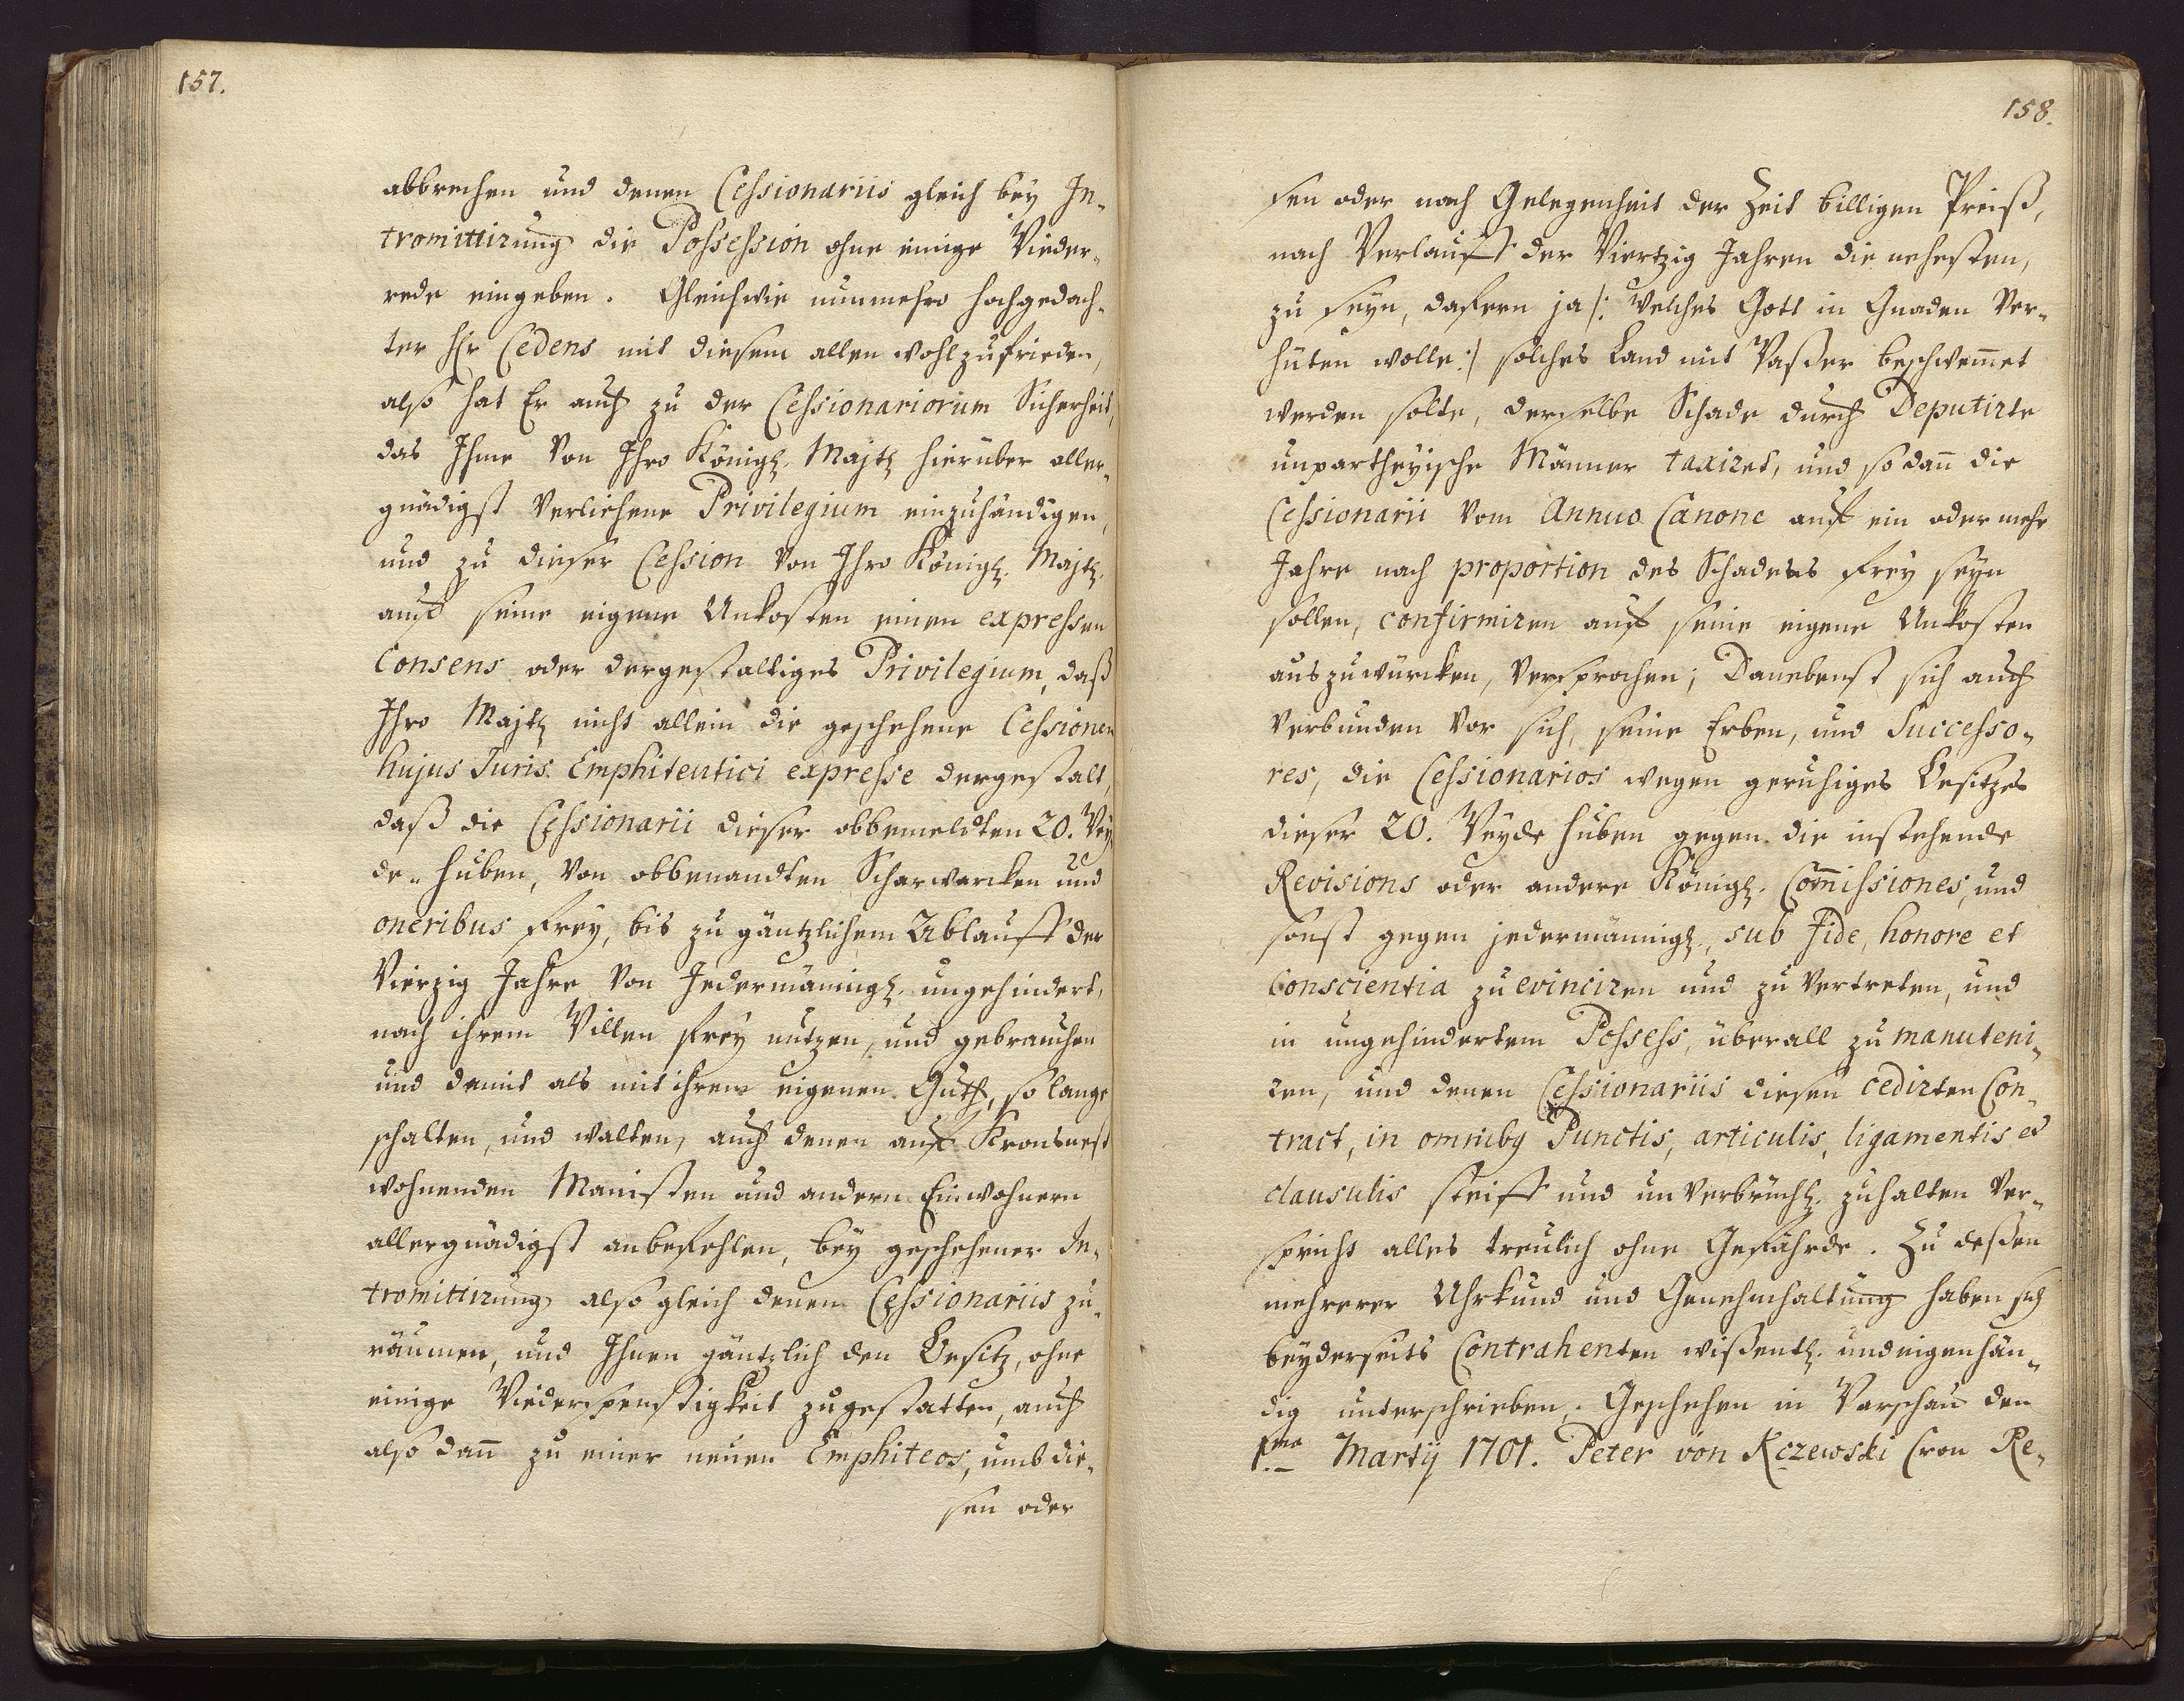 157.
abbrechen und denen Cessionariis gleich bey In-
tromittirung die Possession ohne einige Wieder-
rede eingeben. Gleichwie nunmehro hochgedach-
ter Hr Cedens mit diesem allen wohlzufrieden,
also hat Er auch zu der Cessionariorum Sicherheit,
das Ihme von Ihro Königl. Majtl hierüber aller-
gnädigst verliehene Privilegium einzuhändigen,
und zu dieser Cession von Ihro Königl. Majtl.
auf seine eigene Unkosten einen expressen
Consens oder dergestaltiges Privilegium, daß
Ihro Majtl nicht allein die geschehene Cessionem
hujus Juris Emphiteutici expresse dergestalt,
daß die Cessionarii dieser obbemeldten 20. Wey
de-Huben, von obbenandten Scharwarcken und
oneribus frey, bis zu gäntzlichem Ablauff der
Vierzig Jahre von Jedermännigl. ungehindert,
nach ihrem Willen frey nutzen, und gebrauchen
und damit als mit ihrem eigenen Guth, so lange
schalten, und walten, auch denen auf Kronsnest
wohnenden Manisten und andern Einwohnern
allergnädigst anbefehlen, bey geschehener In-
tromittirung also gleich denen Cessionariis zu-
räumen, und Ihnen gäntzlich den Besitz, ohne
einige Wiederspenstigkeit zugestatten, auch
also dañ zu einer neuen Emphiteos, umb die-
sen oder
158.
sen oder nach Gelegenheit der Zeit billigen Preiß,
nach Verlauff der Viertzig Jahren die nehesten,
zu seyn, dafern ja /: welches Gott in Gnaden ver-
hüten wolle :/ solches Land mit Waßer beschwem̄et
werden solte, derselbe Schade durch Deputirte
unpartheyische Männer taxiret, und so dañ die
Cessionarii vom Annuo Canone auf ein oder mehr
Jahre nach proportion des Schadens frey seyn
sollen, confirmiren auf seine eigene Unkosten
auszuwürcken, versprochen; Danebenst sich auch
verbunden vor sich, seine Erben, und Successo-
res, die Cessionarios wegen geruhiges Besitzes
dieser 20. Weyde Huben gegen die instehende
Revisions oder andere Königl. Com̄issiones, und
sonst gegen jedermännigl., sub fide, honore et
Conscientia zu evinciren und zu vertreten, und
in ungehindertem Possess, überall zu manuteni-
ren, und denen Cessionariis diesen cedirten Con-
tract, in omnibg Punctis, articulis, ligamentis et
clausulis steiff und unverbrüchl. zuhalten ver-
spricht alles treulich ohne Gefährde. Zu deßen
mehrerer Uhrkund und Genehmhaltung haben sich
beyderseits Contrahenten wißentl. und eigenhän-
dig unterschrieben. Geschehen in Warschau den
1.ma Martij 1701. Peter von Kczewski Cron Re-